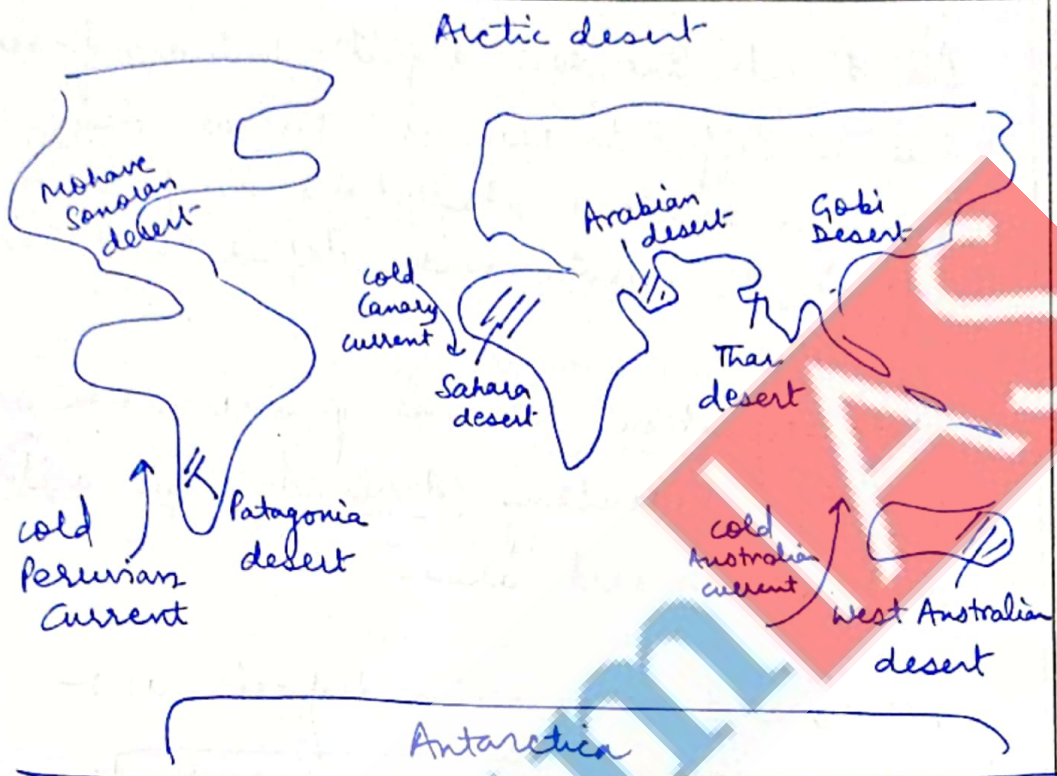 Arctic desert
Mohave
Sonoran
desert
Arabian
desert
Gobi
Desert
cold
Canary
current
Sahara
desert
Thar
desert
cold
Peruvian
Current
Patagonia
desert
cold
Australian
current
West Australian
desert
Antarctica
m
IAS